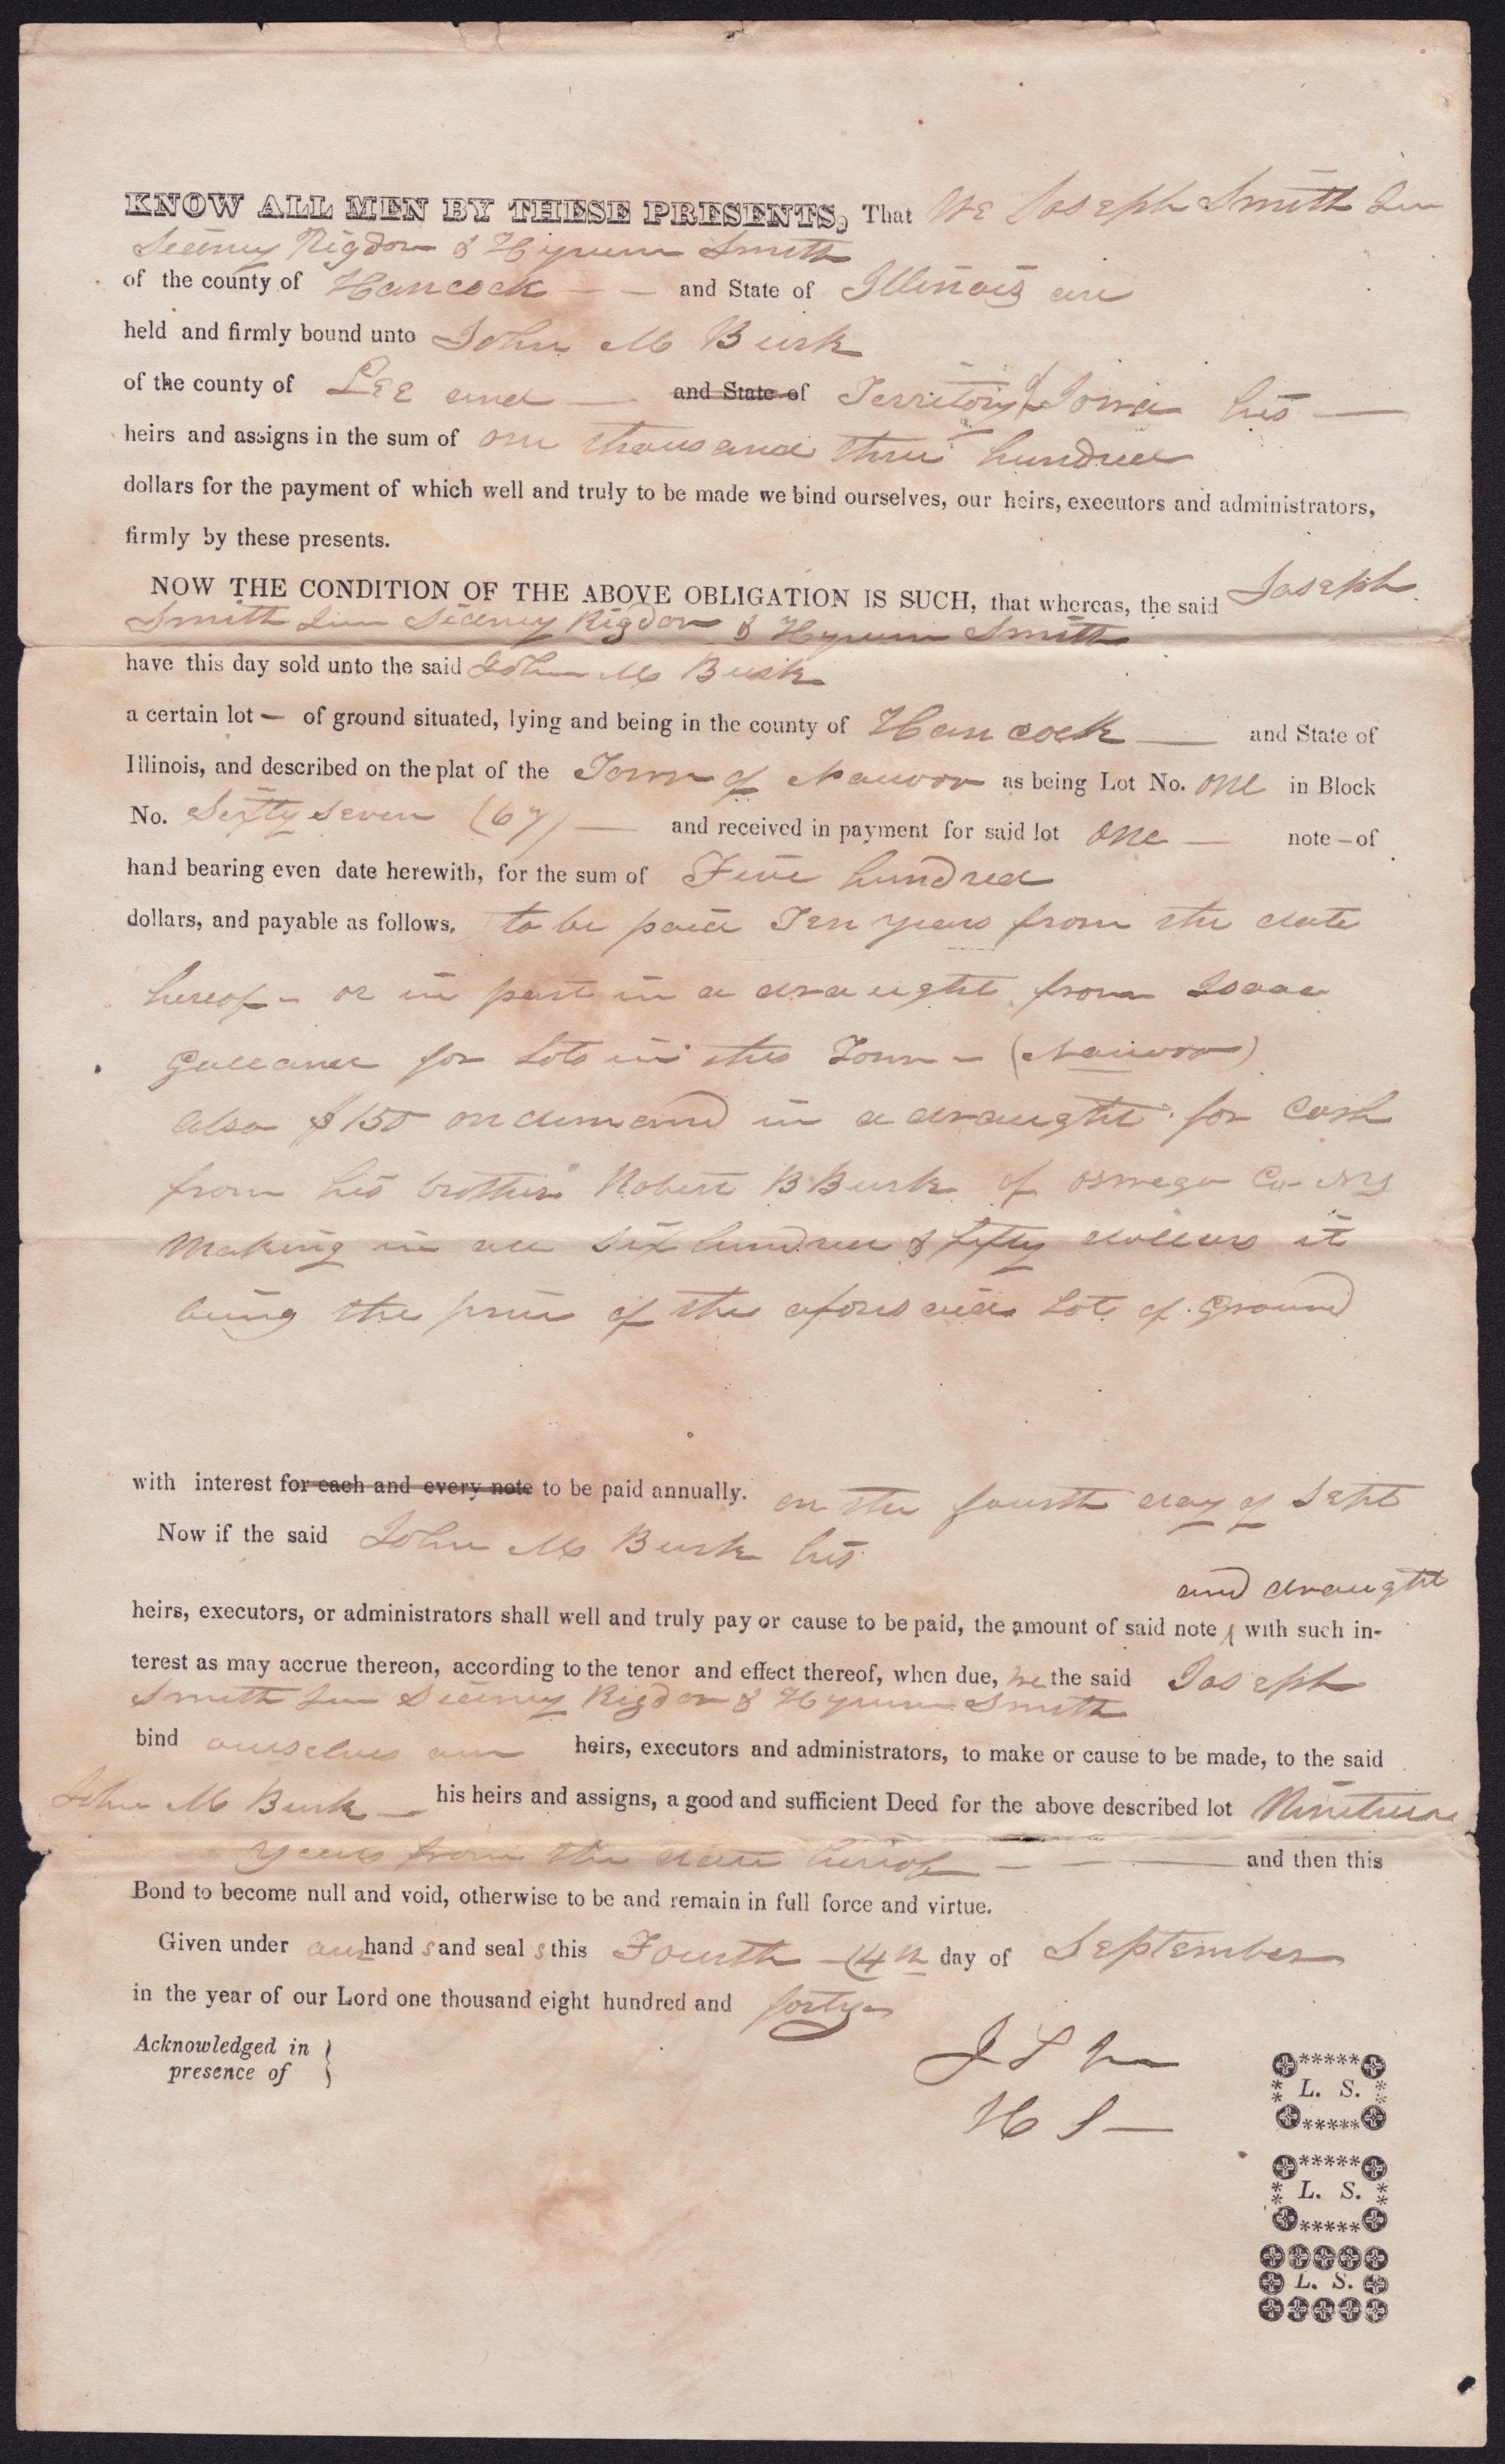 KNOW ALL MEN BY THESE PRESENTS, That We Joseph Smith Jun
Sidney Rigdon & Hyrum Smith
of the county of Hancock — — and State of Illinois are
held and firmly bound unto John M Burk
of the county of Lee and — and State of Territory of Iowa his —
heirs and assigns in the sum of one thousand three hundred
dollars for the payment of which well and truly to be made we bind ourselves, our heirs, executors and administrators,
firmly by these presents.
NOW THE CONDITION OF THE ABOVE OBLIGATION IS SUCH, that whereas, the said Joseph
Smith Jun Sidney Rigdon & Hyrum Smith
have this day sold unto the said John M Burk
a certain lot — of ground situated, lying and being in the county of Hancock — and State of
Illinois, and described on the plat of the Town of Nauvoo as being Lot No. one in Block
No. Sixty seven (67) — and received in payment for said lot one — note – of
hand bearing even date herewith, for the sum of Five hundred
dollars, and payable as follows, to be paid Ten years from the date
hereof – or in part in a draught from Isaac
Galland for Lots in this Town – (Nauvoo)
also $150 on demand in a draught for Cash
from his brother Robert B Burk of Oswego Co NY
Making in all six hundred & fifty dollars it
being the price of the aforesaid Lot of Ground
with interest for each and every note to be paid annually. on the fourth day of Sept
Now if the said John M Burk his
and draught
heirs, executors, or administrators shall well and truly pay or cause to be paid, the amount of said note ^ with such in-
terest as may accrue thereon, according to the tenor and effect thereof, when due, we the said Joseph
Smith Jun Sidney Rigdon & Hyrum Smith
bind ourselves our heirs, executors and administrators, to make or cause to be made, to the said
John M Burk — his heirs and assigns, a good and sufficient Deed for the above described lot Nineteen
years from the date hereof — — — and then this
Bond to become null and void, otherwise to be and remain in full force and virtue.
Given under our hand s and seal s this Fourth – (4th day of September
in the year of our Lord one thousand eight hundred and forty
Acknowledged in }
presence of
J S Jun
H S —
L. S.
L. S.
L. S.